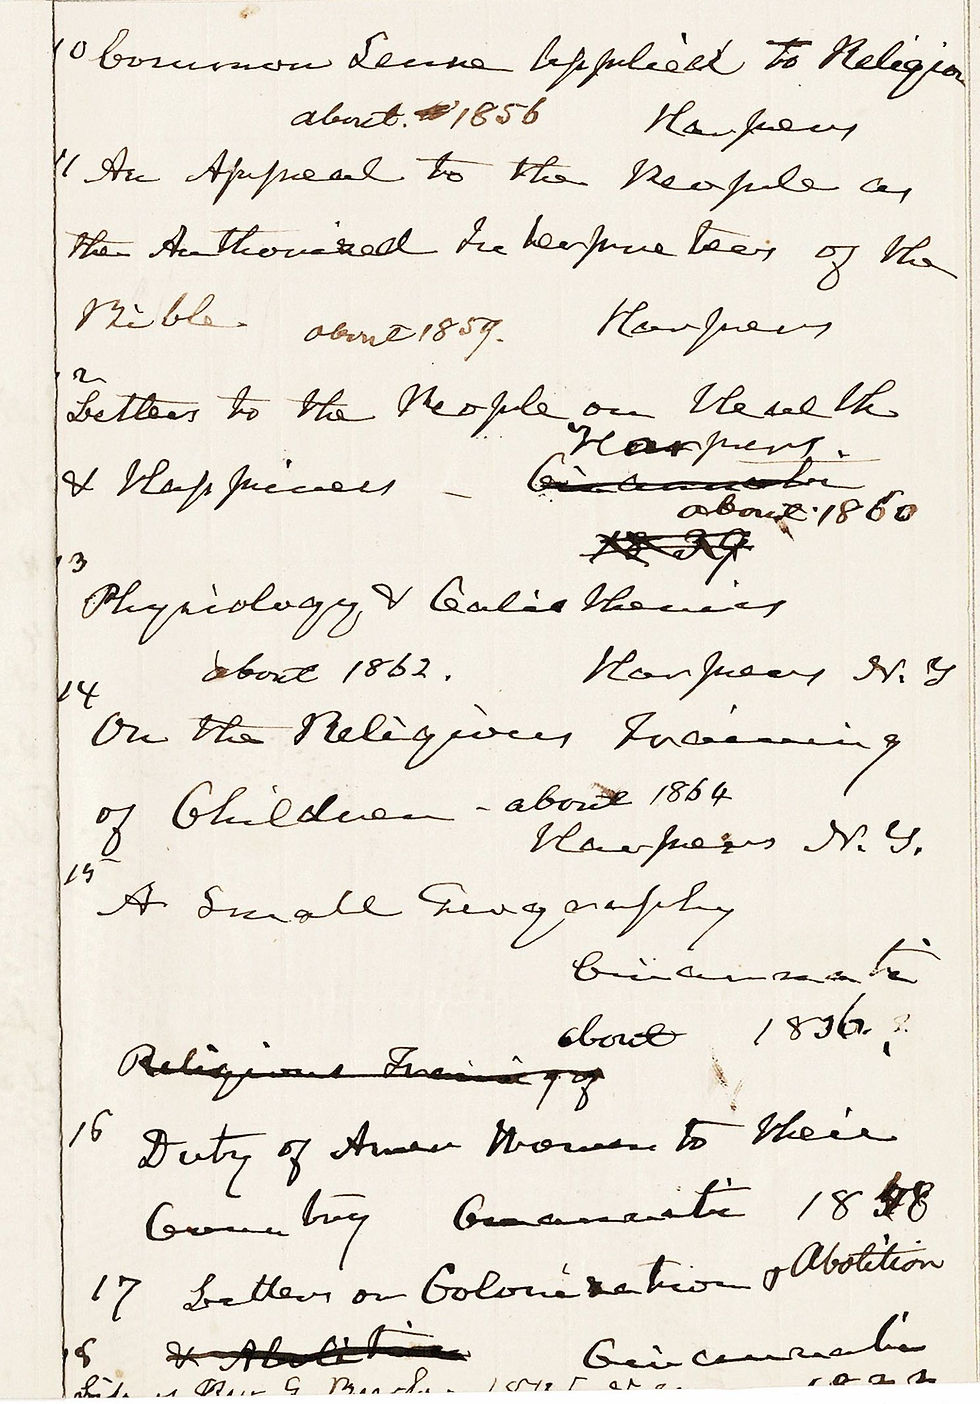 10 Common Sense Applied to Religion
about 1856 Harpers
11 An Appeal to the People as
the Authorized Interpreters of the
Bible about 1859. Harpers
12
Letters to the People on Health
Harpers.
& Happiness – Cincinnati
about 1860
1839
13
Physiology & Calisthenics
about 1862. Harpers N. Y
14
On the Religious Training
of Children - about 1864
Harpers N. Y.
15
A Small Geography
Cincinnati
about 1836. ?
Religious Training of
16 Duty of Amer Women to their
Country Cincinnati 18
17 Letters on Colonization & Abolition
18 & Abolition Cincinnati